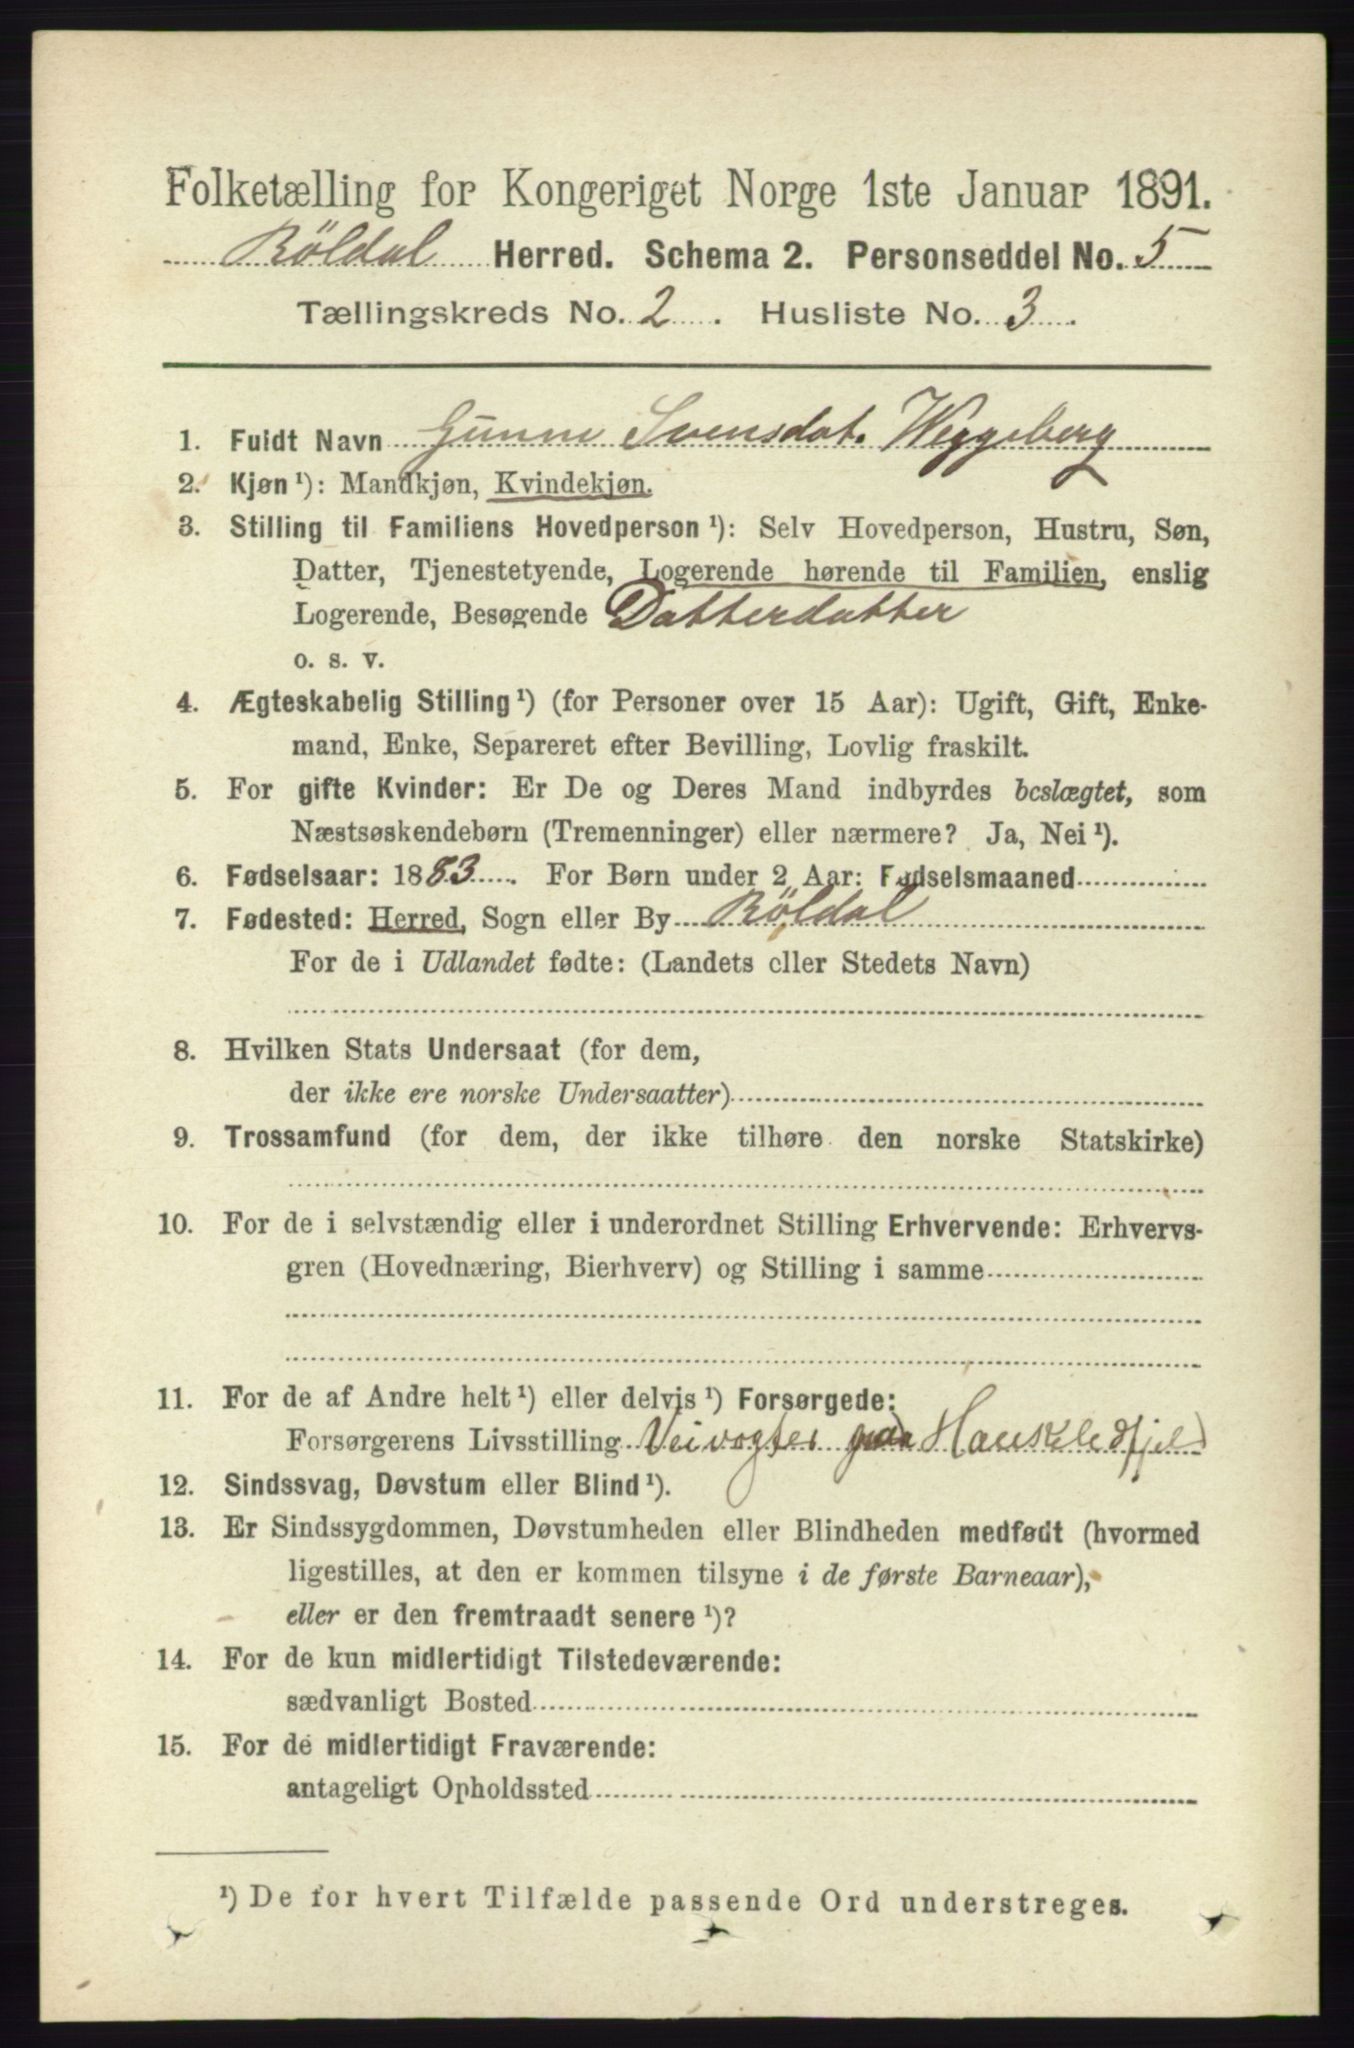 Folketælling for Kongeriget Norge 1ste Januar 1891.
Röldal Herred. Schema 2. Personseddel No. 5
Tællingskreds No. 2. Husliste No. 3.
1. Fuldt Navn Gunne Svensdat. Weggeberg
2. Kjøn ¹): Mandkjøn, Kvindekjøn.
3. Stilling til Familiens Hovedperson ¹): Selv Hovedperson, Hustru, Søn,
Datter, Tjenestetyende, Logerende hørende til Familien, enslig
Logerende, Besøgende Datterdatter
o. s. v.
4. Ægteskabelig Stilling ¹) (for Personer over 15 Aar): Ugift, Gift, Enke-
mand, Enke, Separeret efter Bevilling, Lovlig fraskilt.
5. For gifte Kvinder: Er De og Deres Mand indbyrdes beslægtet, som
Næstsøskendebørn (Tremenninger) eller nærmere? Ja, Nei ¹).
6. Fødselsaar: 1883. For Børn under 2 Aar: Fødselsmaaned
7. Fødested: Herred, Sogn eller By Röldal
For de i Udlandet fødte: (Landets eller Stedets Navn)
8. Hvilken Stats Undersaat (for dem,
der ikke ere norske Undersaatter)
9. Trossamfund (for dem, der ikke tilhøre den norske Statskirke)
10. For de i selvstændig eller i underordnet Stilling Erhvervende: Erhvervs-
gren (Hovednæring, Bierhverv) og Stilling i samme
11. For de af Andre helt ¹) eller delvis ¹) Forsørgede:
Forsørgerens Livsstilling Veivogter paa Haukeledfjeld
12. Sindssvag, Døvstum eller Blind ¹).
13. Er Sindssygdommen, Døvstumheden eller Blindheden medfødt (hvormed
ligestilles, at den er kommen tilsyne i de første Barneaar),
eller er den fremtraadt senere ¹)?
14. For de kun midlertidigt Tilstedeværende:
sædvanligt Bosted
15. For de midlertidigt Fraværende:
antageligt Opholdssted
¹) De for hvert Tilfælde passende Ord understreges.